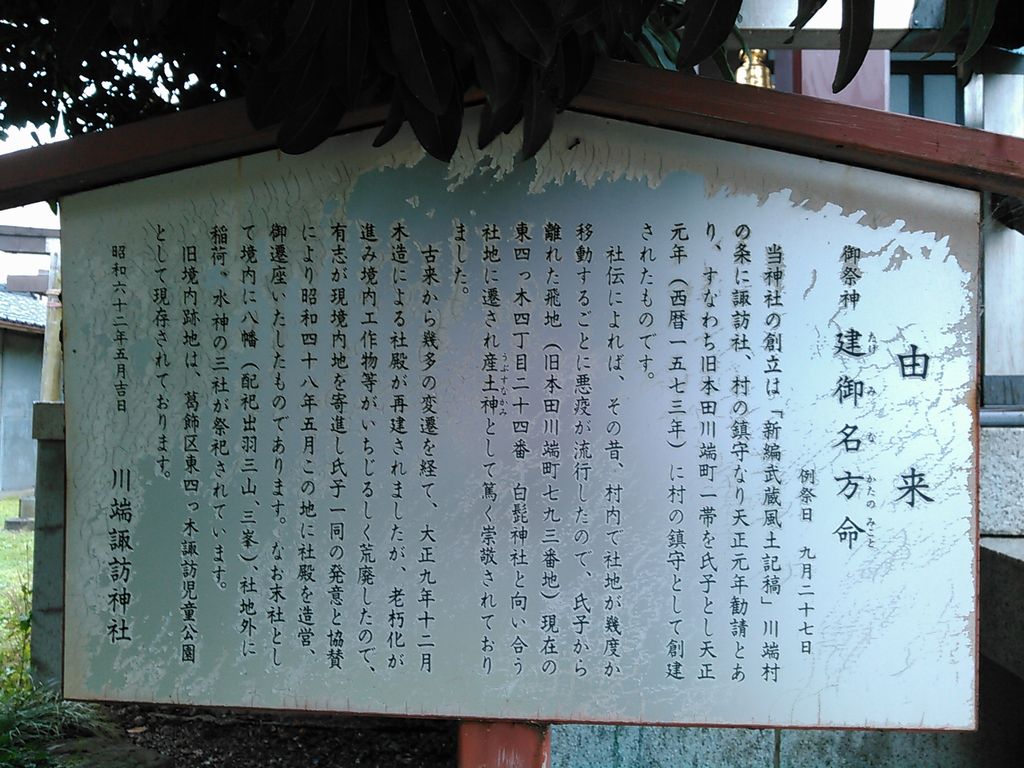 由来
御祭神 建御名方命
たけ み な かたの みこと
例祭日 九月二十七日
当神社の創立は「新編武蔵風土記稿」川端村
の条に諏訪社、村の鎮守なり天正元年勧請とあ
り、すなわち旧本田川端町一帯を氏子とし天正
元年(西暦一五七三年)に村の鎮守として創建
されたものです。
社伝によれば、その昔、村内で社地が幾度か
移動するごとに悪疫が流行したので、氏子から
離れた飛地(旧本田川端町七九三番地)現在の
東四っ木四丁目二十四番 白髭神社と向い合う
社地に遷され産土神として篤く崇敬されており
うぶすなかみ
ました。
古来から幾多の変遷を経て、大正九年十二月
木造による社殿が再建されましたが、老朽化が
進み境内工作物等がいちじるしく荒廃したので、
有志が現境内地を寄進し氏子一同の発意と協賛
により昭和四十八年五月この地に社殿を造営、
御遷座いたしたものであります。なお末社とし
て境内に八幡(配祀出羽三山、三峯)、社地外に
稲荷、水神の三社が祭祀されています。
旧境内跡地は、葛飾区東四っ木諏訪児童公園
として現存されております。
昭和六十二年五月吉日
川端諏訪神社